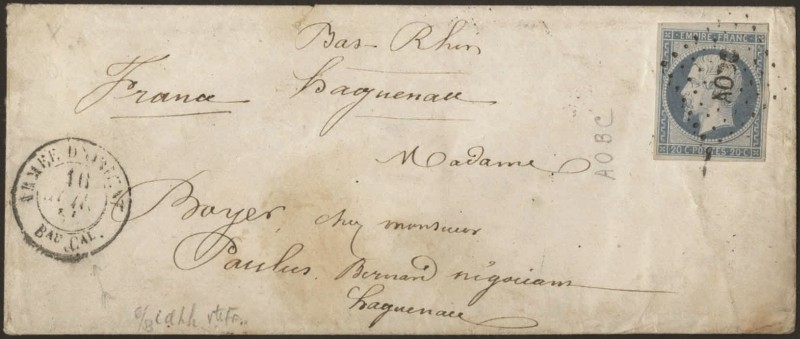 EMPIRE FRANC
20 C POSTES 20 C
Bas-Rhin
France haguenau
AOBC
Madame
ARMÉE D'ORIENT
16
BAU CAL.
Boyer, chez monsieur
Paulus Bernard négociant
haguenau